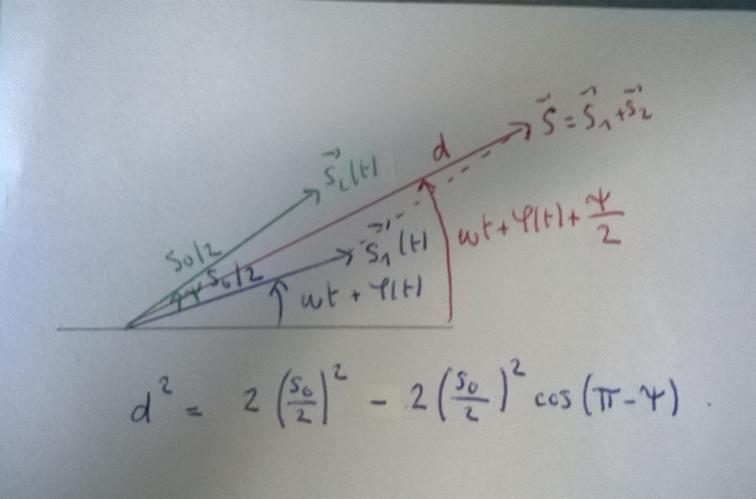 d
S⃗ = S⃗₁ + S⃗₂
S⃗₂(t)
S₀/2
S₀/2
ψ
S⃗₁(t)
ωt + φ(t)
ωt + φ(t) + ψ/2
d² = 2 (S₀/2)² - 2 (S₀/2)² cos (π - ψ) .